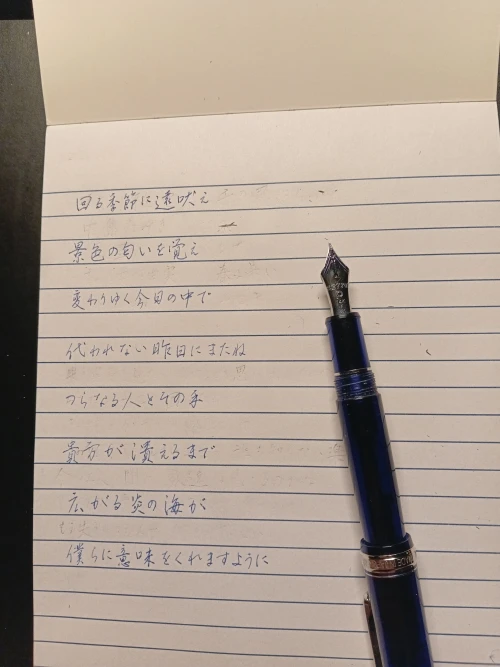 回る季節に遠吠え
景色の匂いを覚え
変わりゆく今日の中で
代われない昨日にまたね
つらなる人とその手
貴方が潰えるまで
広がる炎の海が
僕らに意味をくれますように